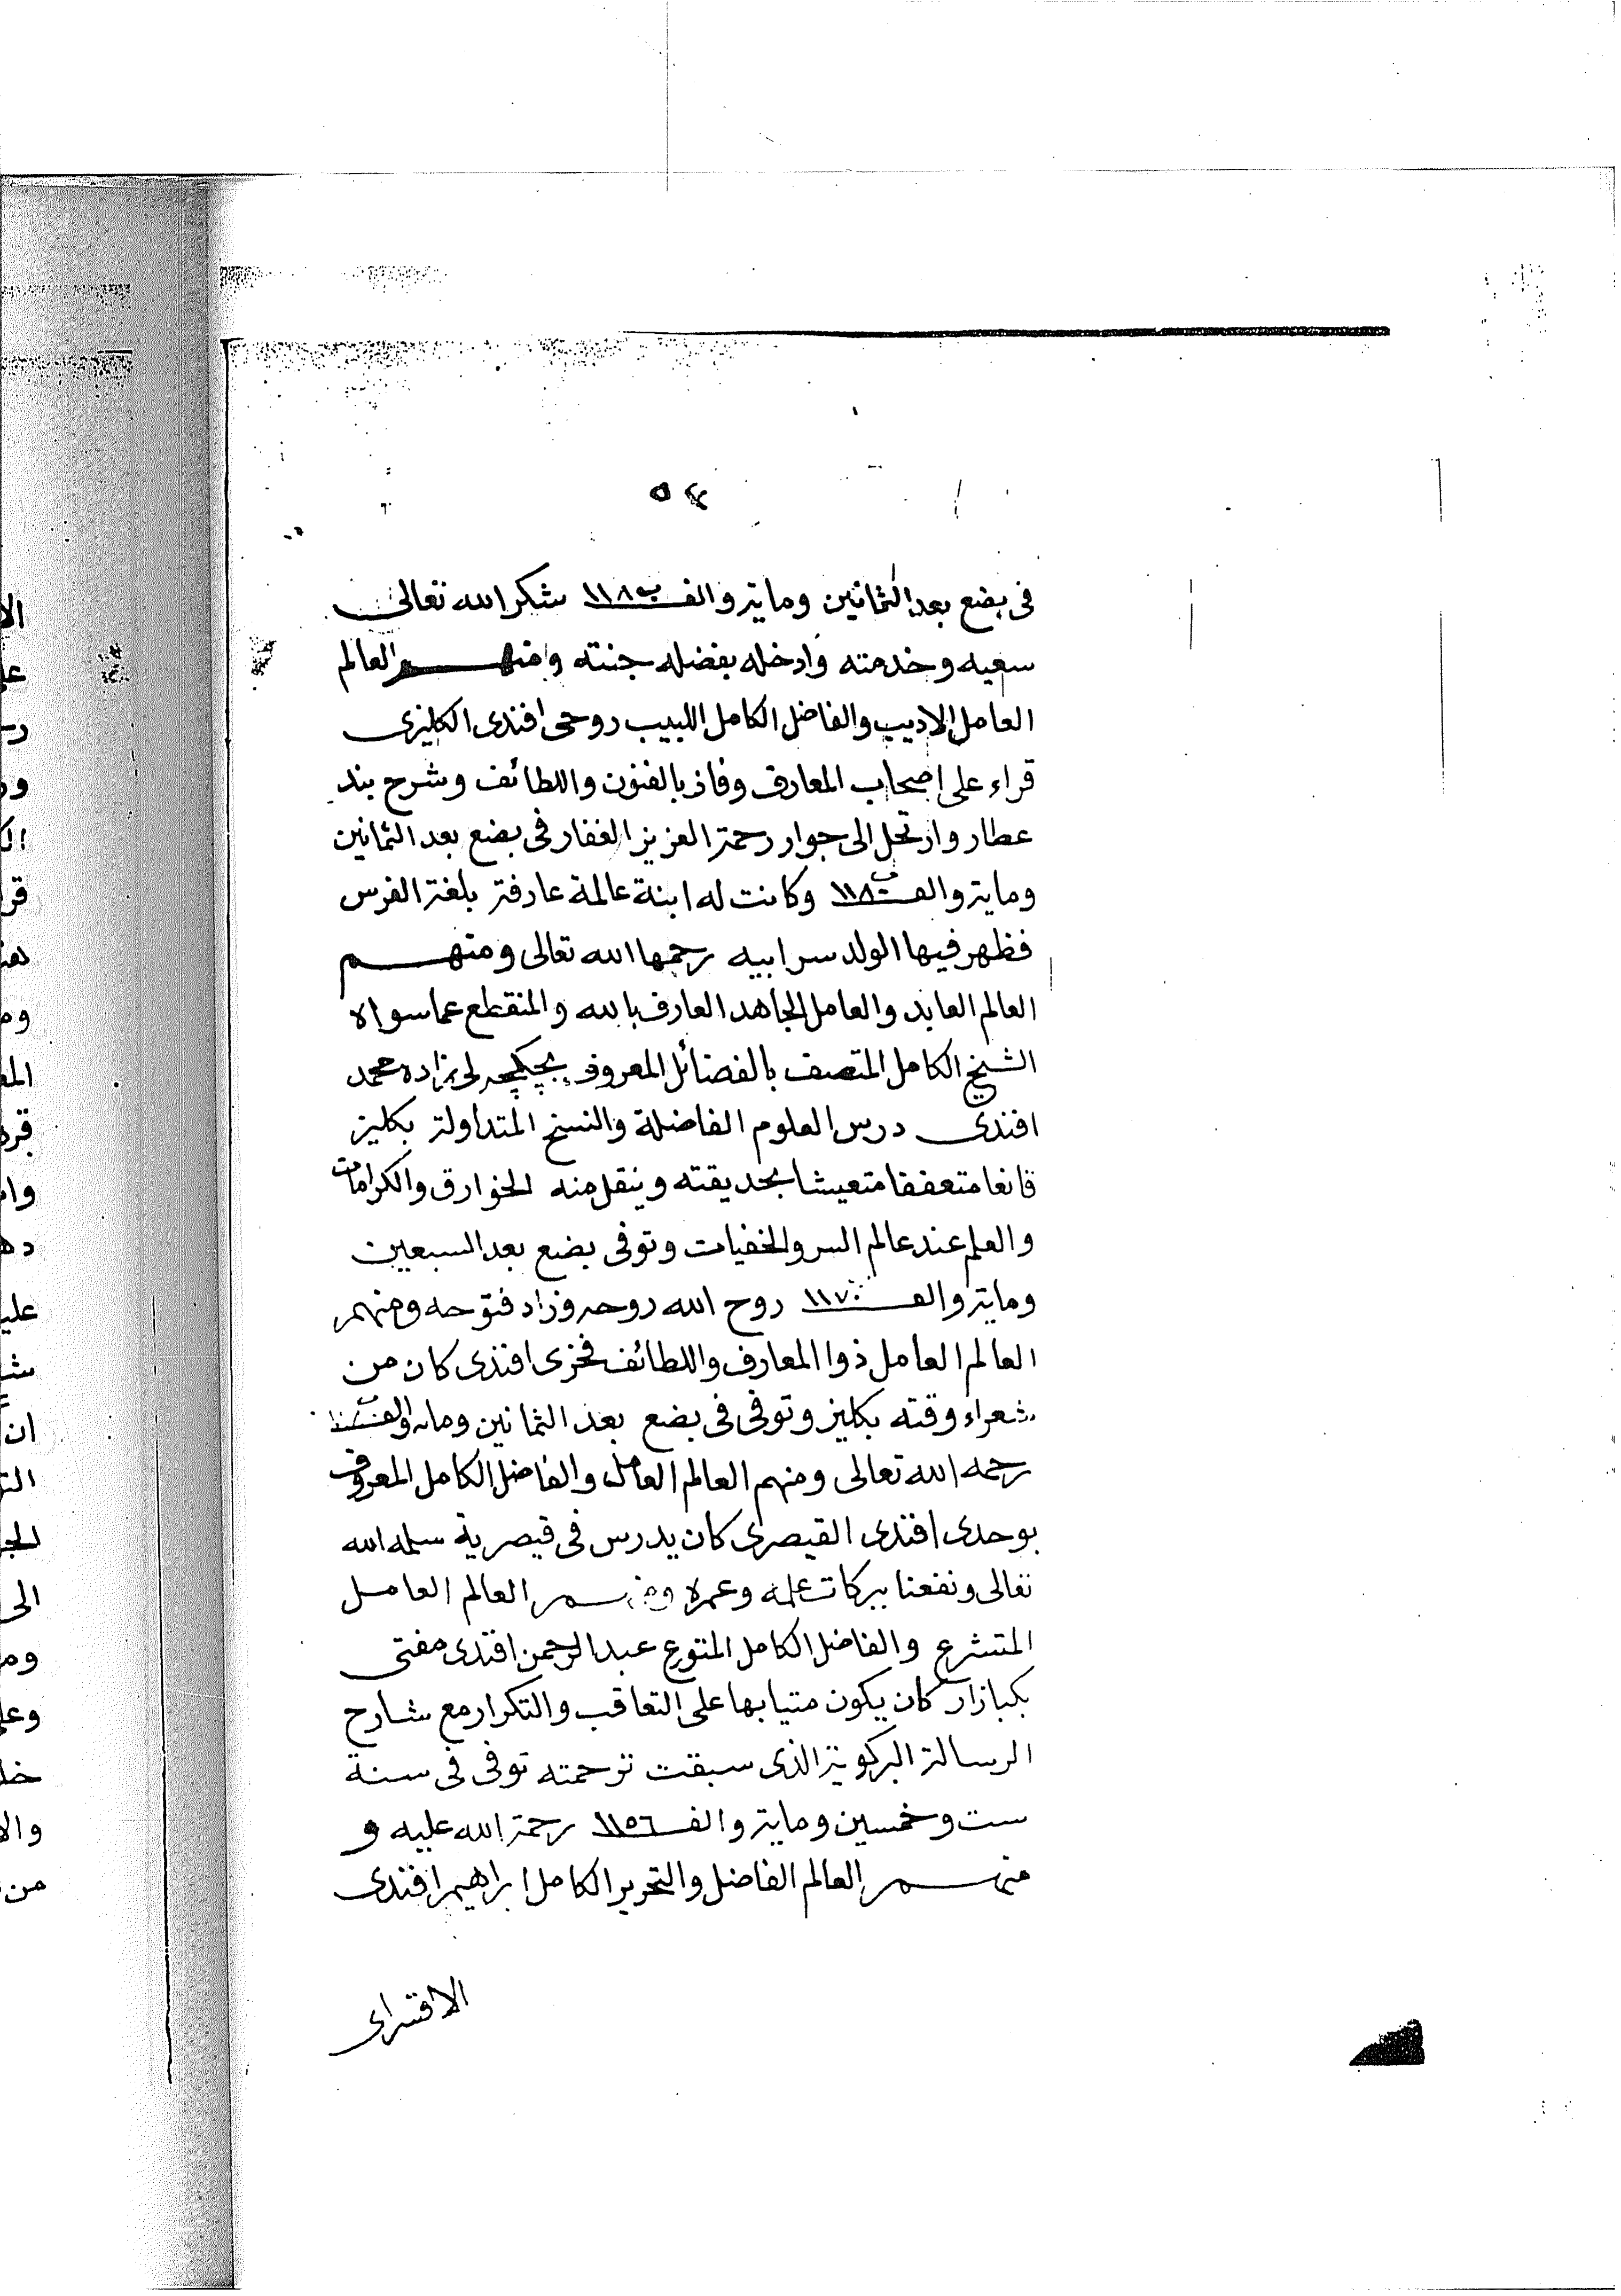 ٥٤
فى بضع بعد الثمانين وماية والف ١١٨٠ شكر الله تعالى
سعيه وخدمته وادخله بفضله جنته ومنهم العالم
العامل الاديب والفاضل الكامل اللبيب روحى افندى الكليزى
قراء على اصحاب المعارف وفاز بالفنون واللطائف وشرح بند
عطار وارتحل الى جوار رحمة العزيز الغفار فى بضع بعد الثمانين
وماية والف ١١٨٠ وكانت له ابنة عالمة عارفة بلغة الفرس
فظهر فيها الولد سر ابيه رحمها الله تعالى ومنهم
العالم العابد والعامل الجاهد العارف بالله والمنقطع عما سواه
الشيخ الكامل المتصف بالفضائل المعروف زاده محمد
افندى درس العلوم الفاضلة والنسخ المتداولة بكليز
قانعا متعففا متعيشا بحديقته وينقل منه الخوارق والكرامات
والعلم عند عالم السر والخفيات وتوفى بضع بعد السبعين
وماية والف ١١٧٠ روح الله روحه وزاد فتوحه ومنهم
العالم العامل ذوا المعارف واللطائف فخرى افندى كان من
شعراء وقته بكليز وتوفى فى بضع بعد الثمانين وماية والف
رحمه الله تعالى ومنهم العالم العامل والفاضل الكامل المعروف
بوحدى افندى القيصرى كان يدرس فى قيصرية سلمه الله
تعالى ونفعنا ببركات علمه وعمره ومنهم العالم العامل
المتشرع والفاضل الكامل المتورع عبد الرحمن افندى مفتى
بكبازار كان يكون متيابها على التعاقب والتكرار مع شارح
الرسالة البركوية الذى سبقت ترجمته توفى فى سنة
ست وخمسين وماية والف ١١٥٦ رحمة الله عليه و
منهم العالم الفاضل والتحرير الكامل ابراهيم افندى
الاقسراى